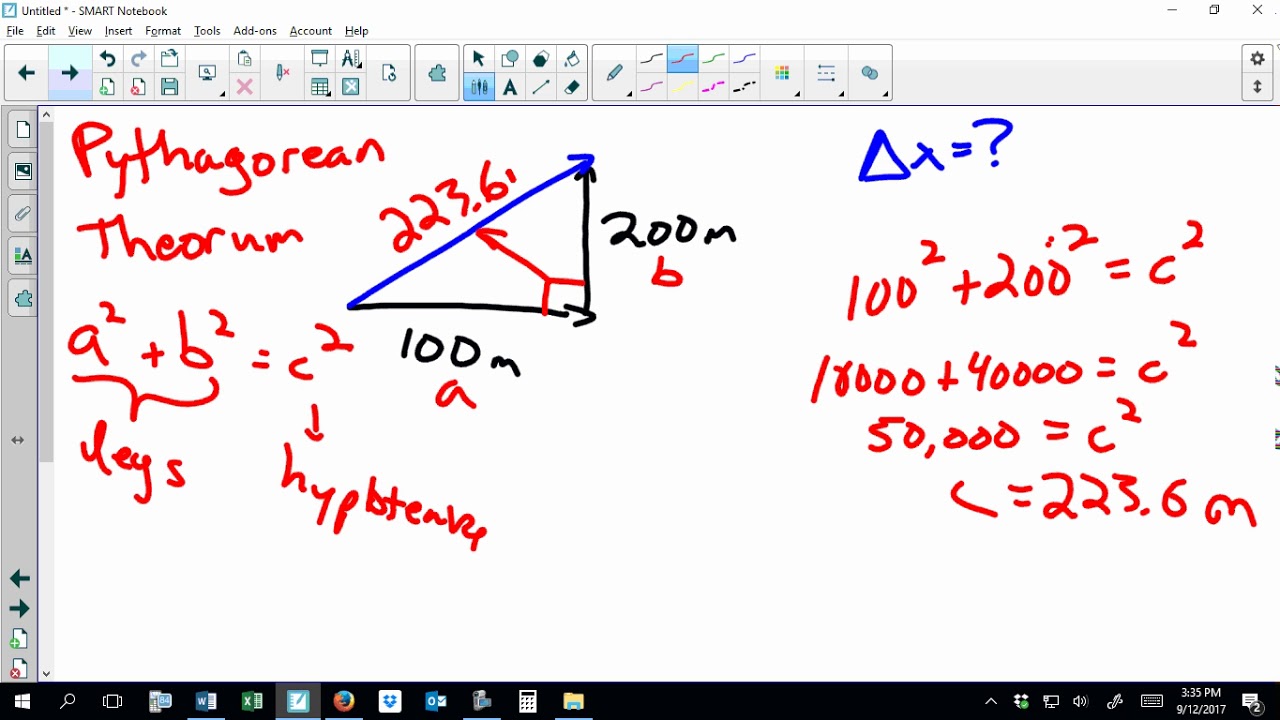 Untitled * - SMART Notebook
File Edit View Insert Format Tools Add-ons Account Help
Pythagorean
Theorum
a² + b² = c²
legs
223.6
200m
b
100m
a
Δx=?
100² + 200² = c²
10000 + 40000 = c²
50,000 = c²
c = 223.6 m
3:35 PM
9/12/2017